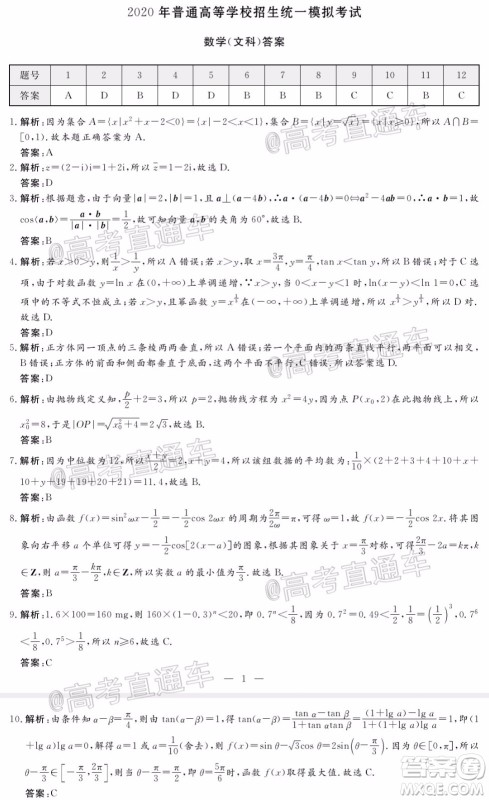 2020 年普通高等学校招生统一模拟考试
数学(文科)答案
题号 1 2 3 4 5 6 7 8 9 10 11 12
答案 A D B D D B B B C C B C
1.解析:因为集合 A={x|x²+x-2<0}={x|-2<x<1},集合 B={x|y=√x}={x|x≥0},所以 A∩B=
[0,1).故本题正确答案为 A.
答案:A
2.解析:z=(2-i)i=1+2i,所以 z̄=1-2i,故选 D.
答案:D
3.解析:根据题意,由于向量|a|=2,|b|=1,且 a⊥(a-4b),∴a·(a-4b)=0⇔a²-4ab=0,∴a·b=1,故
cos⟨a,b⟩=a·b/|a|·|b|=1/2,故可知向量 a,b 的夹角为 60°,故选 B.
答案:B
4.解析:若 x>0>y,则 1/x>1/y,所以 A 错误;若 x>y,取 x=3π/4,y=π/4,tan x<tan y,所以 B 错误;对于 C 选
项,由于对数函数 y=ln x 在(0,+∞)上单调递增,∵x>y,当 0<x-y<1 时,ln(x-y)<ln 1=0,C 选
项中的不等式不恒成立;若 x>y,且幂函数
在(-∞,+∞)上单调递增,所以
,所以 D 对.
故选 D.
答案:D
5.解析:正方体同一顶点的三条棱两两垂直,所以 A 错误;若一个平面内的两条直线平行,两平面可以相交,
B 错误;正方体的前面和侧面都垂直于底面,这两个面不平行,C 错误,故选 D.
答案:D
6.解析:由抛物线定义知,p/2+2=3,所以 p=2,抛物线方程为 x²=4y,因为点 P(x₀,2)在此抛物线上,所以
x₀²=8,于是|OP|=√(x₀²+4)=2√3,故选 B.
答案:B
7.解析:因为中位数为 12,所以 (x+y)/2=2,x+y=4,所以该组数据的平均数为:1/10×(2+2+3+4+10+x+
10+y+19+19+20+21)=11.4,故选 B.
答案:B
8.解析:由函数 f(x)=sin²ωx-1/2=-1/2cos 2ωx 的周期为 2π/2ω=π,可得 ω=1,故 f(x)=-1/2cos 2x.将其图
象向右平移 a 个单位可得 y=-1/2cos[2(x-a)]的图象.根据其图象关于 x=π/3 对称,可得 2π/3-2a=kπ,k
∈Z,则 a=π/3-kπ/2,k∈Z,所以实数 a 的最小值为 π/3.故选 B.
答案:B
9.解析:1.6×100=160 mg,则 160×(1-0.3)ⁿ<20,即 0.7ⁿ<1/8,因为 0.7²=0.49<1/2,1/8=(1/2)³,0.7⁶
<1/8,0.7⁵>1/8,所以 n≥6,故选 C.
答案:C
— 1 —
10.解析:由条件知 α-β=π/4,则由 tan(α-β)=1,得 tan(α-β)=(tan α-tan β)/(1+tan αtan β)=
=1,即(1
+lg a)lg a=0.解得 a=1,a=1/10(舍去),则 f(x)=sin θ-√3cos θ=2sin(θ-π/3).因为 θ∈[0,π],所以
θ-π/3∈[-π/3,2π/3],则当 θ-π/3=π/2,即 θ=5π/6时,函数 f(x)取得最大值.故选 C.
答案:C
@高考直通车